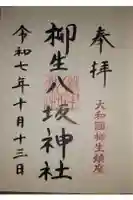 奉拝
大和國柳生鎮座
柳生八坂神社
令和七年十月十三日